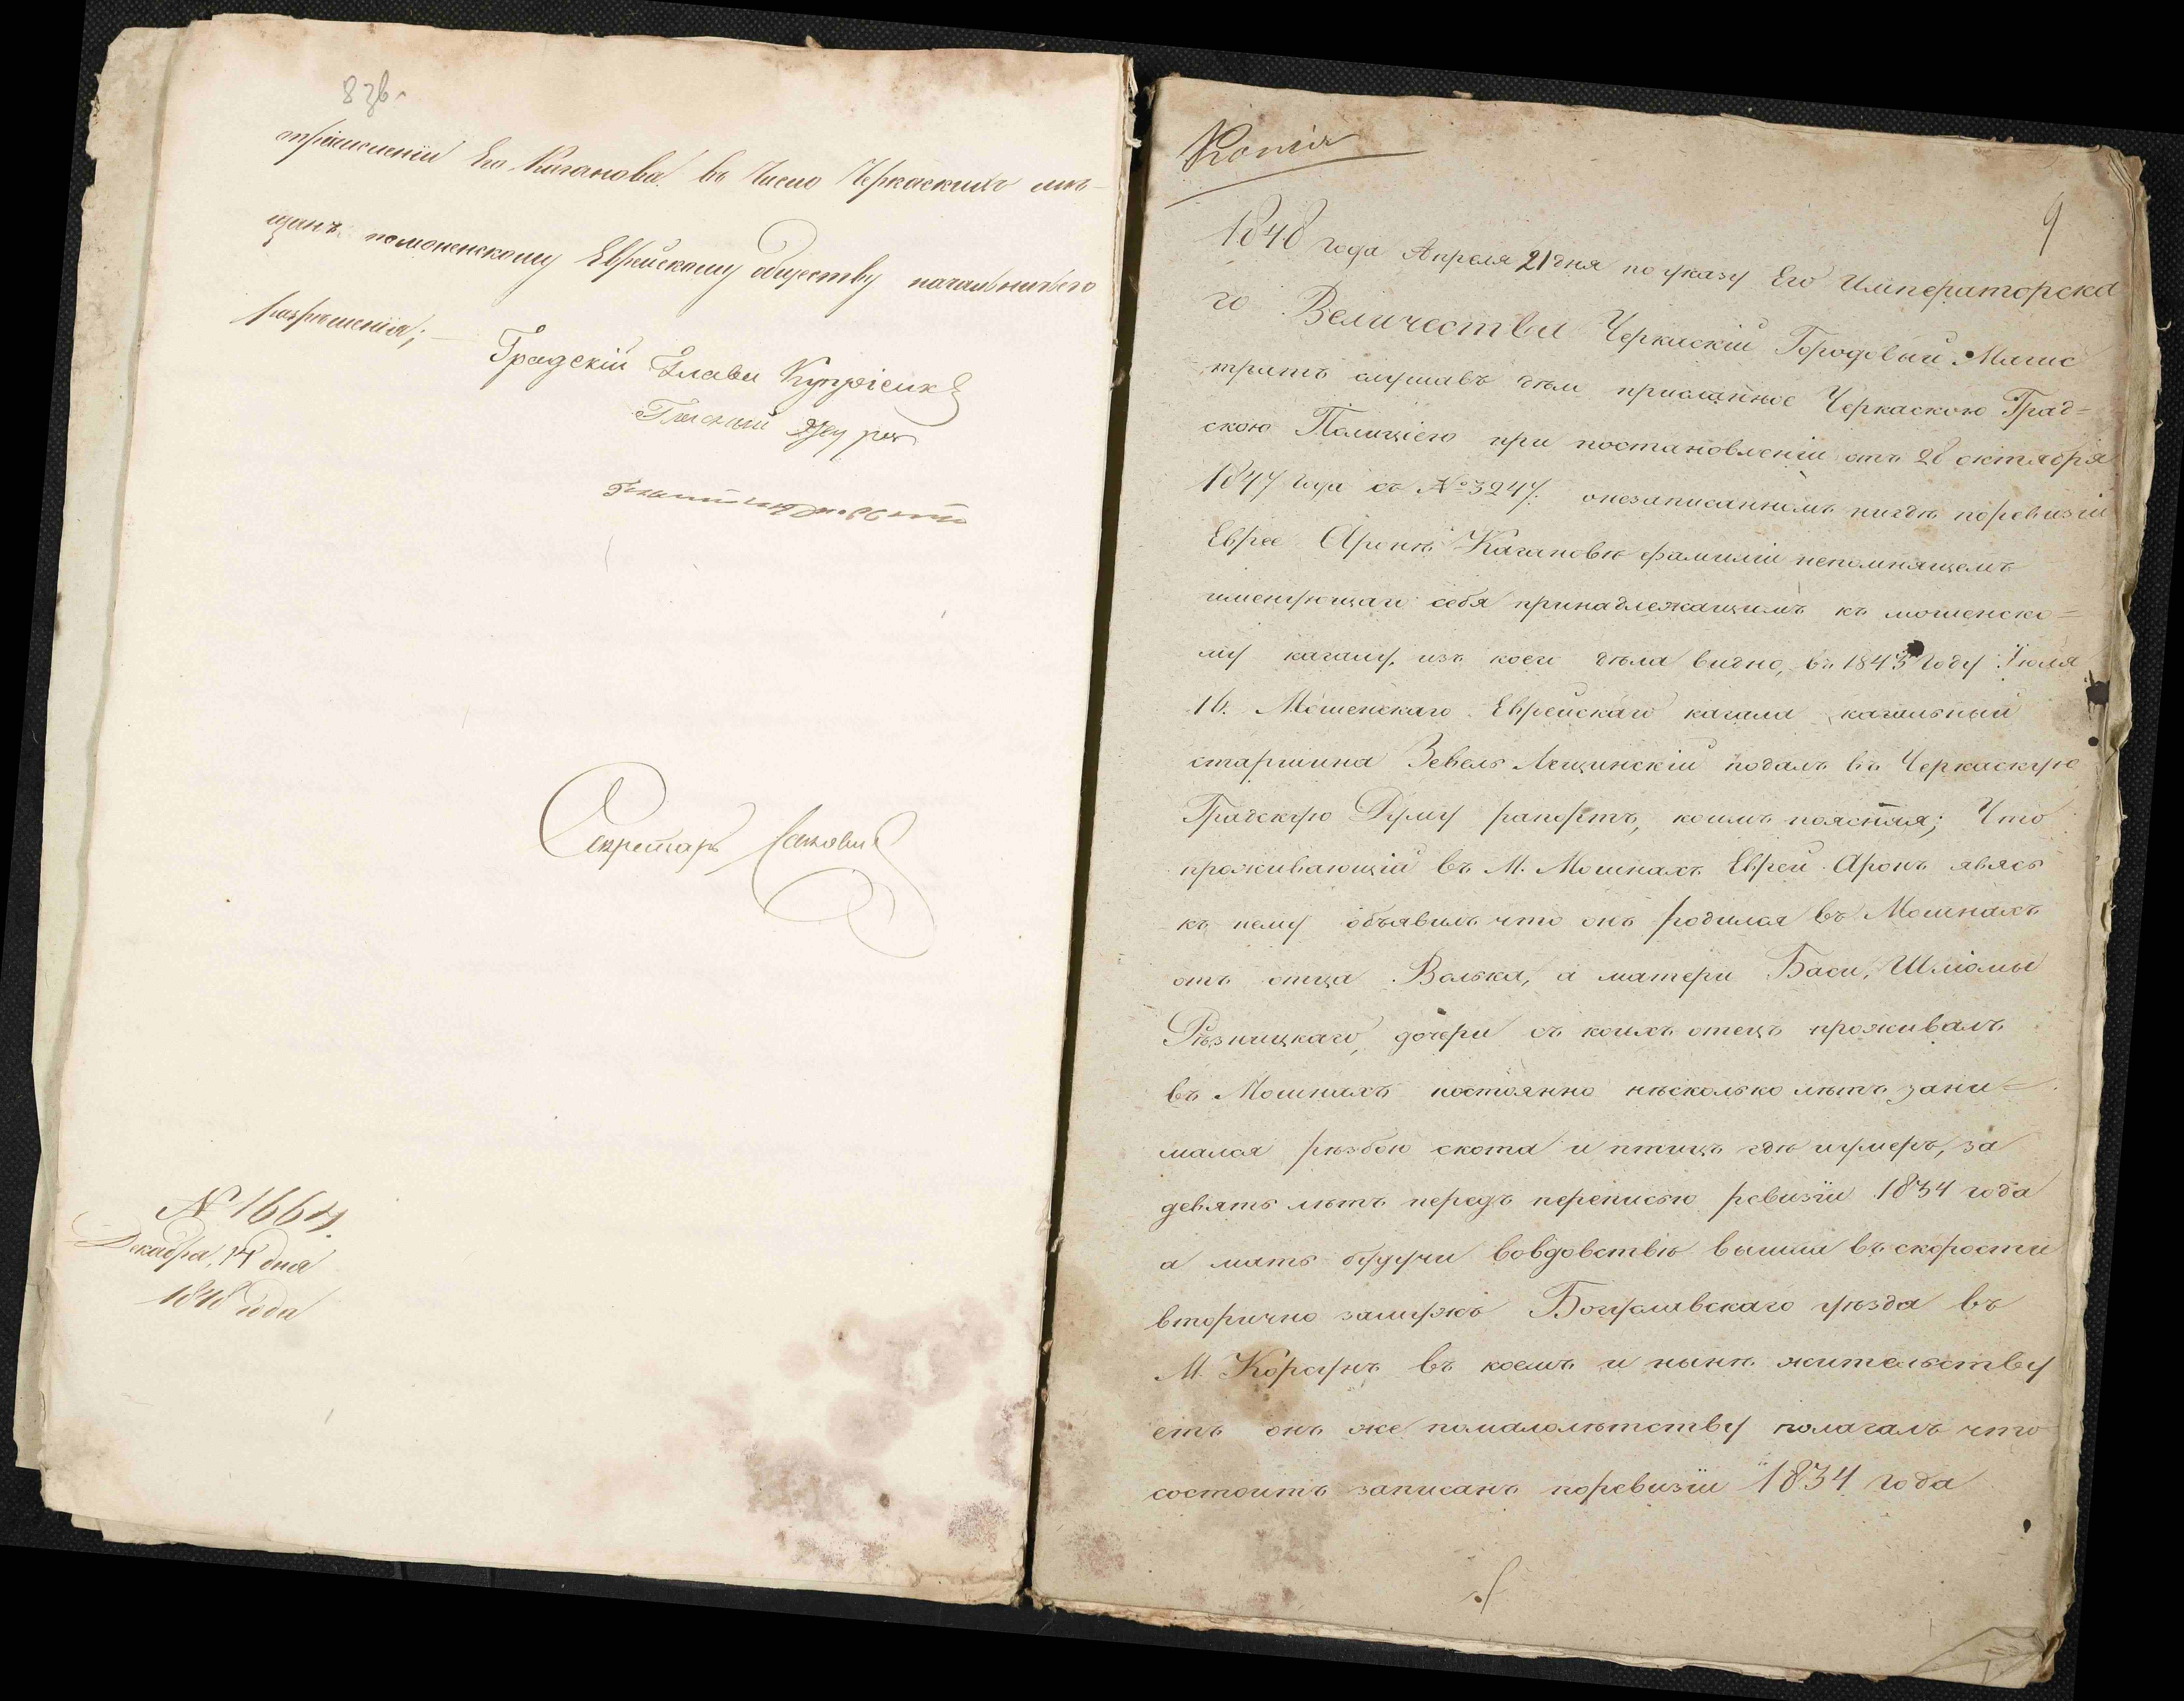 8 зв.
численіи Его Каганова въ Число Черкаскихъ мѣ-
щанъ помошенскому Еврейскому обществу начальничего
разрѣшенія;
Градскій Глава Купріенко
Гласный
Секретарь
№ 1664.
Декабря 14 дня
1848 года
Копія
9
1848 года Апреля 21 дня по указу Его Императорска
го Величества Черкаскій Городовый Магис
тратъ слушавъ дѣли присланное Черкаскою Град=
скою Полиціею при постановленіи отъ 28 октября
1847 года съ № 3247. онезаписанномъ нигдѣ поревизіи
Еврее Аронѣ Кагановѣ фамиліи непомнящемъ
именующаго себя принадлежащимъ къ мошенско=
му кагалу, изъ коего дѣла видно, въ 1843 году Іюля
16. Мошенскаго Еврейскаго кагала кагальный
старшина Зевель Лещинскій подалъ въ Черкаскую
Градскую Думу рапортъ, коимъ поясняя; Что
проживающій въ М. Мошнахъ Еврей Аронъ явясь
къ нему объявилъ что онъ родился въ Мошнахъ
отъ отца Волька, а матери Баси, Шліомы
Рѣзницкаго, дочери съ коихъ отецъ проживалъ
въ Мошнахъ постоянно нѣсколько лѣтъ зани=
мался рѣзбою скота и птицъ гдѣ иумеръ, за
девять лѣтъ передъ переписью ревизіи 1834 года
а мать будучи вовдовствѣ вышла въскорости
вторично замужъ Богуславскаго уѣзда въ
М. Корсунъ въ коемъ и нынѣ жительству
етъ онъ же помалолѣтству полагалъ что
состоитъ записанъ поревизіи 1834 года